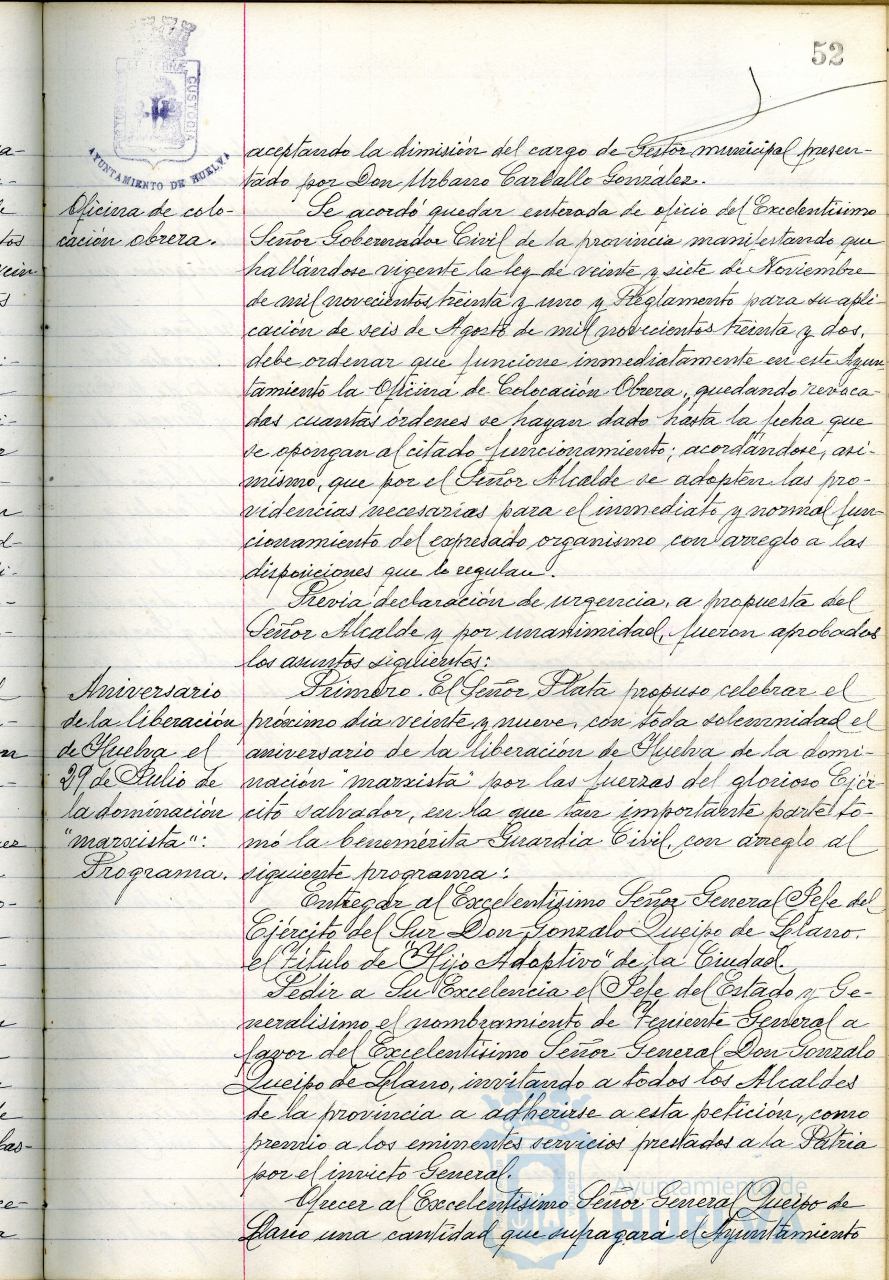 52
PORTUS MARIS
ET TERRÆ
CUSTODIA
AYUNTAMIENTO DE HUELVA
aceptando la dimisión del cargo de Gestor municipal presen-
tado por Don Urbano Carballo González.
Oficina de colo-
cación obrera.
Se acordó quedar enterada de oficio del Excelentísimo
Señor Gobernador Civil de la provincia manifestando que
hallándose vigente la ley de veinte y siete de Noviembre
de mil novecientos treinta y uno y Reglamento para su apli-
cación de seis de Agosto de mil novecientos treinta y dos,
debe ordenar que funcione inmediatamente en este Ayun-
tamiento la Oficina de Colocación Obrera, quedando revoca-
das cuantas órdenes se hayan dado hasta la fecha que
se opongan al citado funcionamiento; acordándose, asi-
mismo, que por el Señor Alcalde se adopten las pro-
videncias necesarias para el inmediato y normal fun-
cionamiento del expresado organismo con arreglo a las
disposiciones que lo regulan.
Previa declaración de urgencia, a propuesta del
Señor Alcalde y por unanimidad, fueron aprobados
los asuntos siguientes:
Aniversario
de la liberación
de Huelva el
29 de Julio de
la dominación
"marxista":
Programa.
Primero. El Señor Plata propuso celebrar el
próximo dia veinte y nueve, con toda solemnidad el
aniversario de la liberación de Huelva de la domi-
nación "marxista" por las fuerzas del glorioso Ejér-
cito salvador, en la que tan importante parte to-
mó la benemérita Guardia Civil, con arreglo al
siguiente programa:
Entregar al Excelentísimo Señor General Jefe del
Ejército del Sur Don Gonzalo Queipo de Llano,
el Título de "Hijo Adoptivo" de la Ciudad.
Pedir a Su Excelencia el Jefe del Estado y Ge-
neralísimo el nombramiento de Teniente General a
favor del Excelentísimo Señor General Don Gonzalo
Queipo de Llano, invitando a todos los Alcaldes
de la provincia a adherirse a esta petición, como
premio a los eminentes servicios prestados a la Patria
por el invicto General.
Ofrecer al Excelentísimo Señor General Queipo de
Llano una cantidad que sufragará el Ayuntamiento
Ayuntamiento de
HUELVA